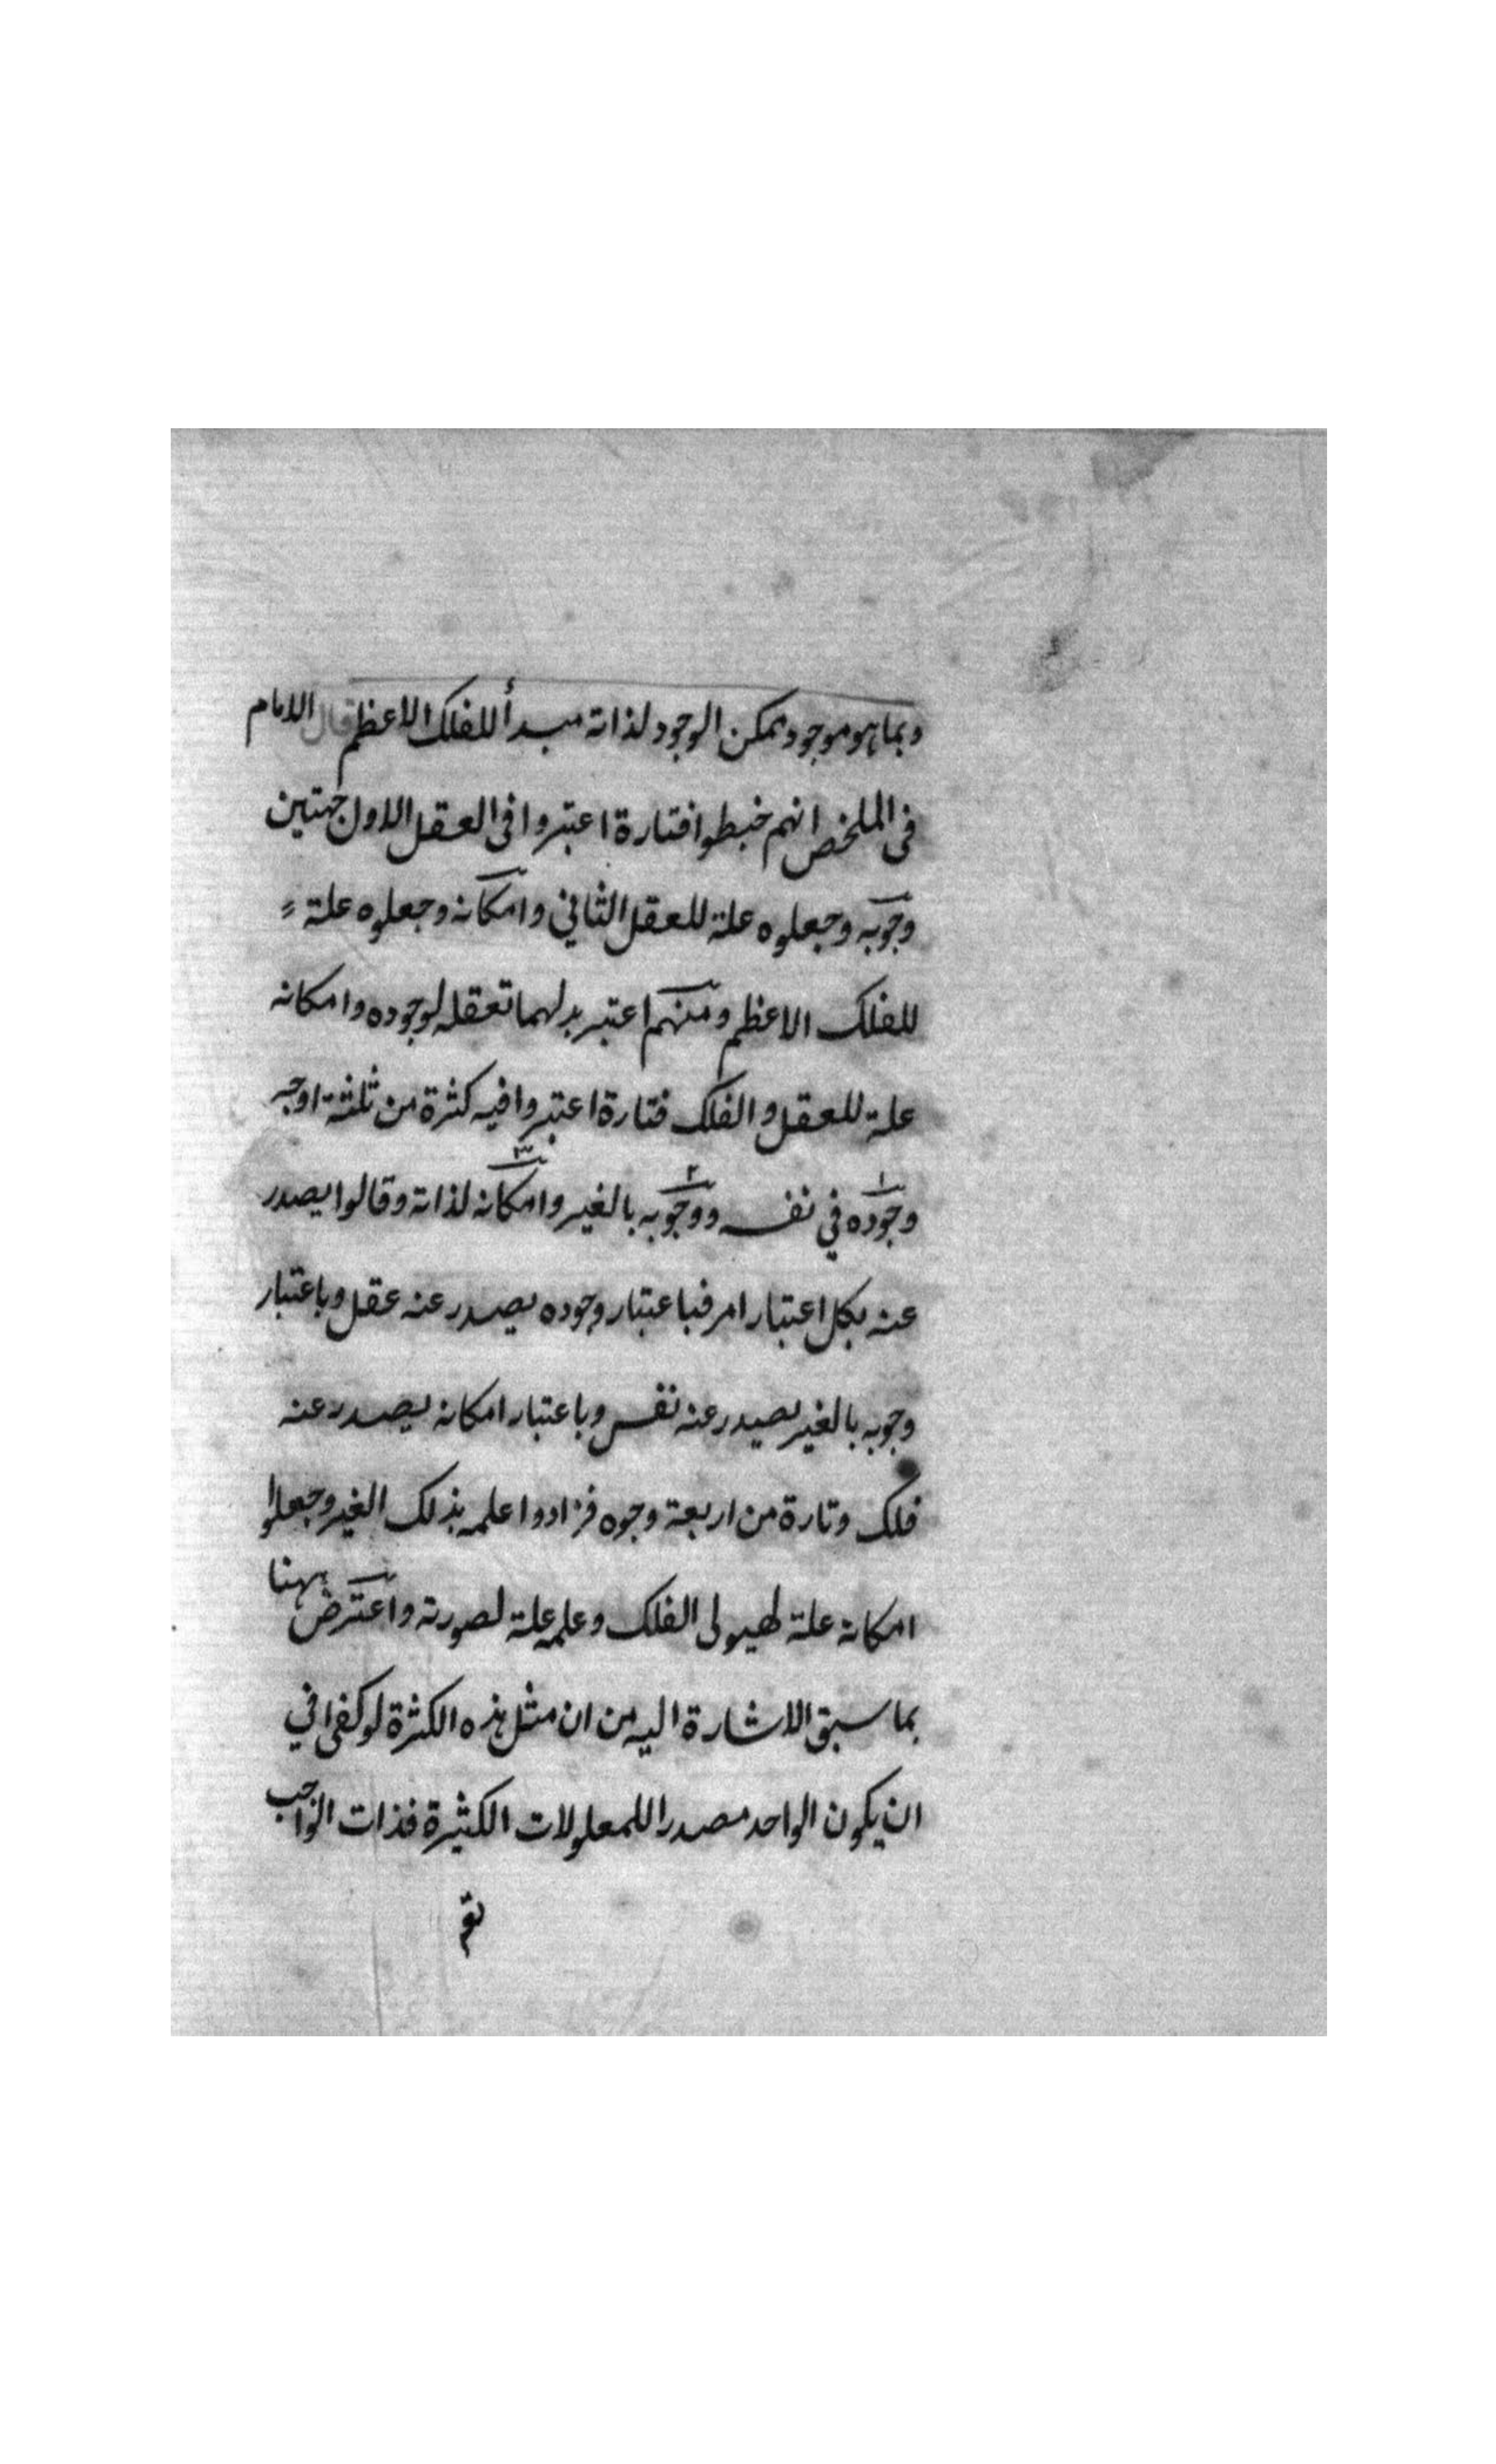 وبما هو موجود ممكن الوجود لذاته مبدأ للفلك الاعظم قال الامام
في الملخص انهم خبطوا فتارة اعتبروا في العقل الاول جهتين
وجوبه وجعلوه علة للعقل الثاني وامكانه وجعلوه علة
للفلك الاعظم ومنهم اعتبر بدلهما تعقله لوجوده وامكانه
علة للعقل والفلك فتارة اعتبروا فيه كثرة من ثلثة اوجه
وجوده في نفسه ووجوبه بالغير وامكانه لذاته وقالوا يصدر
عنه بكل اعتبار امر فباعتبار وجوده يصدر عنه عقل وباعتبار
وجوبه بالغير يصدر عنه نفس وباعتبار امكانه يصدر عنه
فلك وتارة من اربعة وجوه فزادوا علمه بذلك الغير وجعلوا
امكانه علة لهيولى الفلك وعلمه علة لصورته واعترض ههنا
بما سبق الاشارة اليه من ان مثل هذه الكثرة لو كفى في
ان يكون الواحد مصدرا للمعلولات الكثيرة فذات الواجب